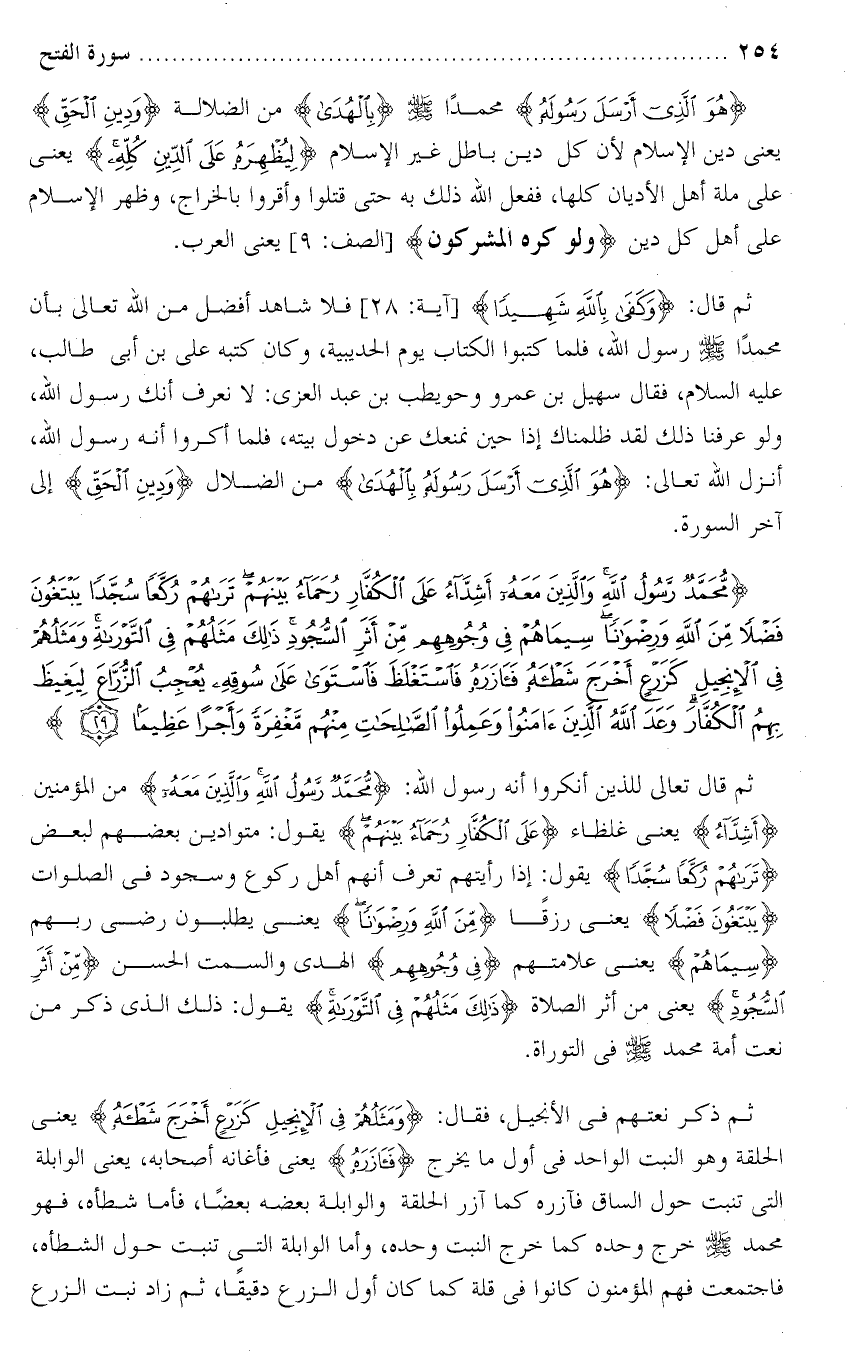 ٢٥٤ ........................................................................ سورة الفتح
﴿هُوَ ٱلَّذِىٓ أَرْسَلَ رَسُولَهُۥ﴾ محمدًا ﷺ ﴿بِٱلْهُدَىٰ﴾ من الضلالة ﴿وَدِينِ ٱلْحَقِّ﴾
يعنى دين الإسلام لأن كل دين باطل غير الإسلام ﴿لِيُظْهِرَهُۥ عَلَى ٱلدِّينِ كُلِّهِۦۚ﴾ يعنى
على ملة أهل الأديان كلها، ففعل الله ذلك به حتى قتلوا وأقروا بالخراج، وظهر الإسلام
على أهل كل دين ﴿ولو كره المشركون﴾ [الصف: ٩] يعنى العرب.
ثم قال: ﴿وَكَفَىٰ بِٱللَّهِ شَهِيدًا﴾ [آية: ٢٨] فلا شاهد أفضل من الله تعالى بأن
محمدًا ﷺ رسول الله، فلما كتبوا الكتاب يوم الحديبية، وكان كتبه على بن أبى طالب،
عليه السلام، فقال سهيل بن عمرو وحويطب بن عبد العزى: لا نعرف أنك رسول الله،
ولو عرفنا ذلك لقد ظلمناك إذا حين نمنعك عن دخول بيته، فلما أكروا أنه رسول الله،
أنزل الله تعالى: ﴿هُوَ ٱلَّذِىٓ أَرْسَلَ رَسُولَهُۥ بِٱلْهُدَىٰ﴾ من الضلال ﴿وَدِينِ ٱلْحَقِّ﴾ إلى
آخر السورة.
﴿مُّحَمَّدٌ رَّسُولُ ٱللَّهِۚ وَٱلَّذِينَ مَعَهُۥٓ أَشِدَّآءُ عَلَى ٱلْكُفَّارِ رُحَمَآءُ بَيْنَهُمْۖ تَرَىٰهُمْ رُكَّعًا سُجَّدًا يَبْتَغُونَ
فَضْلًا مِّنَ ٱللَّهِ وَرِضْوَٰنًاۖ سِيمَاهُمْ فِى وُجُوهِهِم مِّنْ أَثَرِ ٱلسُّجُودِۚ ذَٰلِكَ مَثَلُهُمْ فِى ٱلتَّوْرَىٰةِۚ وَمَثَلُهُمْ
فِى ٱلْإِنجِيلِ كَزَرْعٍ أَخْرَجَ شَطْـَٔهُۥ فَـَٔازَرَهُۥ فَٱسْتَغْلَظَ فَٱسْتَوَىٰ عَلَىٰ سُوقِهِۦ يُعْجِبُ ٱلزُّرَّاعَ لِيَغِيظَ
بِهِمُ ٱلْكُفَّارَۗ وَعَدَ ٱللَّهُ ٱلَّذِينَ ءَامَنُوا۟ وَعَمِلُوا۟ ٱلصَّـٰلِحَـٰتِ مِنْهُم مَّغْفِرَةً وَأَجْرًا عَظِيمًۢا ٢٩﴾
ثم قال تعالى للذين أنكروا أنه رسول الله: ﴿مُّحَمَّدٌ رَّسُولُ ٱللَّهِۚ وَٱلَّذِينَ مَعَهُۥٓ﴾ من المؤمنين
﴿أَشِدَّآءُ﴾ يعنى غلظاء ﴿عَلَى ٱلْكُفَّارِ رُحَمَآءُ بَيْنَهُمْۖ﴾ يقول: متوادين بعضهم لبعض
﴿تَرَىٰهُمْ رُكَّعًا سُجَّدًا﴾ يقول: إذا رأيتهم تعرف أنهم أهل ركوع وسجود فى الصلوات
﴿يَبْتَغُونَ فَضْلًا﴾ يعنى رزقًا ﴿مِّنَ ٱللَّهِ وَرِضْوَٰنًاۖ﴾ يعنى يطلبون رضى ربهم
﴿سِيمَاهُمْ﴾ يعنى علامتهم ﴿فِى وُجُوهِهِم﴾ الهدى والسمت الحسن ﴿مِّنْ أَثَرِ
ٱلسُّجُودِۚ﴾ يعنى من أثر الصلاة ﴿ذَٰلِكَ مَثَلُهُمْ فِى ٱلتَّوْرَىٰةِۚ﴾ يقول: ذلك الذى ذكر من
نعت أمة محمد ﷺ فى التوراة.
ثم ذكر نعتهم فى الأنجيل، فقال: ﴿وَمَثَلُهُمْ فِى ٱلْإِنجِيلِ كَزَرْعٍ أَخْرَجَ شَطْـَٔهُۥ﴾ يعنى
الحلقة وهو النبت الواحد فى أول ما يخرج ﴿فَـَٔازَرَهُۥ﴾ يعنى فأغانه أصحابه، يعنى الوابلة
التى تنبت حول الساق فآزره كما آزر الحلقة والوابلة بعضه بعضًا، فأما شطأه، فهو
محمد ﷺ خرج وحده كما خرج النبت وحده، وأما الوابلة التى تنبت حول الشطأه،
فاجتمعت فهم المؤمنون كانوا فى قلة كما كان أول الزرع دقيقًا، ثم زاد نبت الزرع